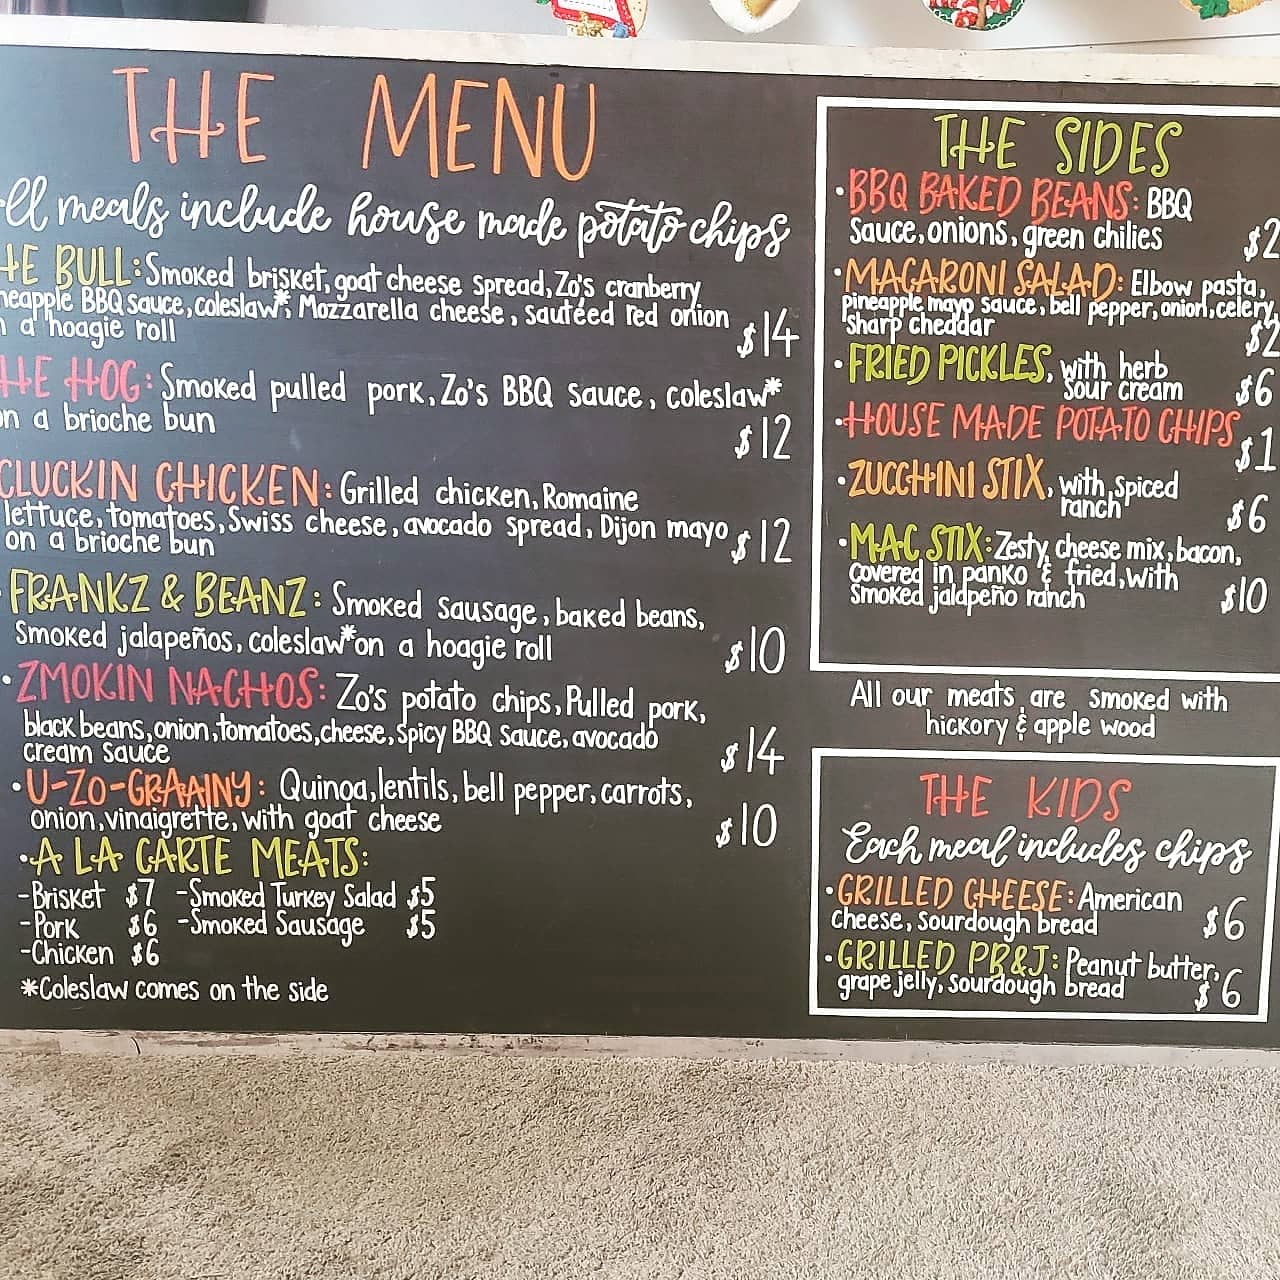 THE MENU
ll meals include house made potato chips
HE BULL: Smoked brisket, goat cheese spread, Zo's cranberry
neapple BBQ sauce, coleslaw*, Mozzarella cheese, sautéed red onion
n a hoagie roll $14
HE HOG: Smoked pulled pork, Zo's BBQ sauce, coleslaw*
on a brioche bun $12
CLUCKIN CHICKEN: Grilled chicken, Romaine
lettuce, tomatoes, Swiss cheese, avocado spread, Dijon mayo
on a brioche bun $12
FRANKZ & BEANZ: Smoked sausage, baked beans,
smoked jalapeños, coleslaw* on a hoagie roll $10
•ZMOKIN NACHOS: Zo's potato chips, Pulled pork,
black beans, onion, tomatoes, cheese, spicy BBQ sauce, avocado
cream sauce $14
•U-ZO-GRAAINY: Quinoa, lentils, bell pepper, carrots,
onion, vinaigrette, with goat cheese $10
•A LA CARTE MEATS:
-Brisket $7 -Smoked Turkey Salad $5
-Pork $6 -Smoked Sausage $5
-Chicken $6
*Coleslaw comes on the side
THE SIDES
•BBQ BAKED BEANS: BBQ
sauce, onions, green chilies $2
•MACARONI SALAD: Elbow pasta,
pineapple mayo sauce, bell pepper, onion, celery,
sharp cheddar $2
•FRIED PICKLES, with herb
sour cream $6
•HOUSE MADE POTATO CHIPS
$1
•ZUCCHINI STIX, with spiced
ranch $6
•MAC STIX: Zesty cheese mix, bacon,
covered in panko & fried, with
smoked jalapeño ranch $10
All our meats are smoked with
hickory & apple wood
THE KIDS
Each meal includes chips
•GRILLED CHEESE: American
cheese, sourdough bread $6
•GRILLED PB&J: Peanut butter,
grape jelly, sourdough bread $6